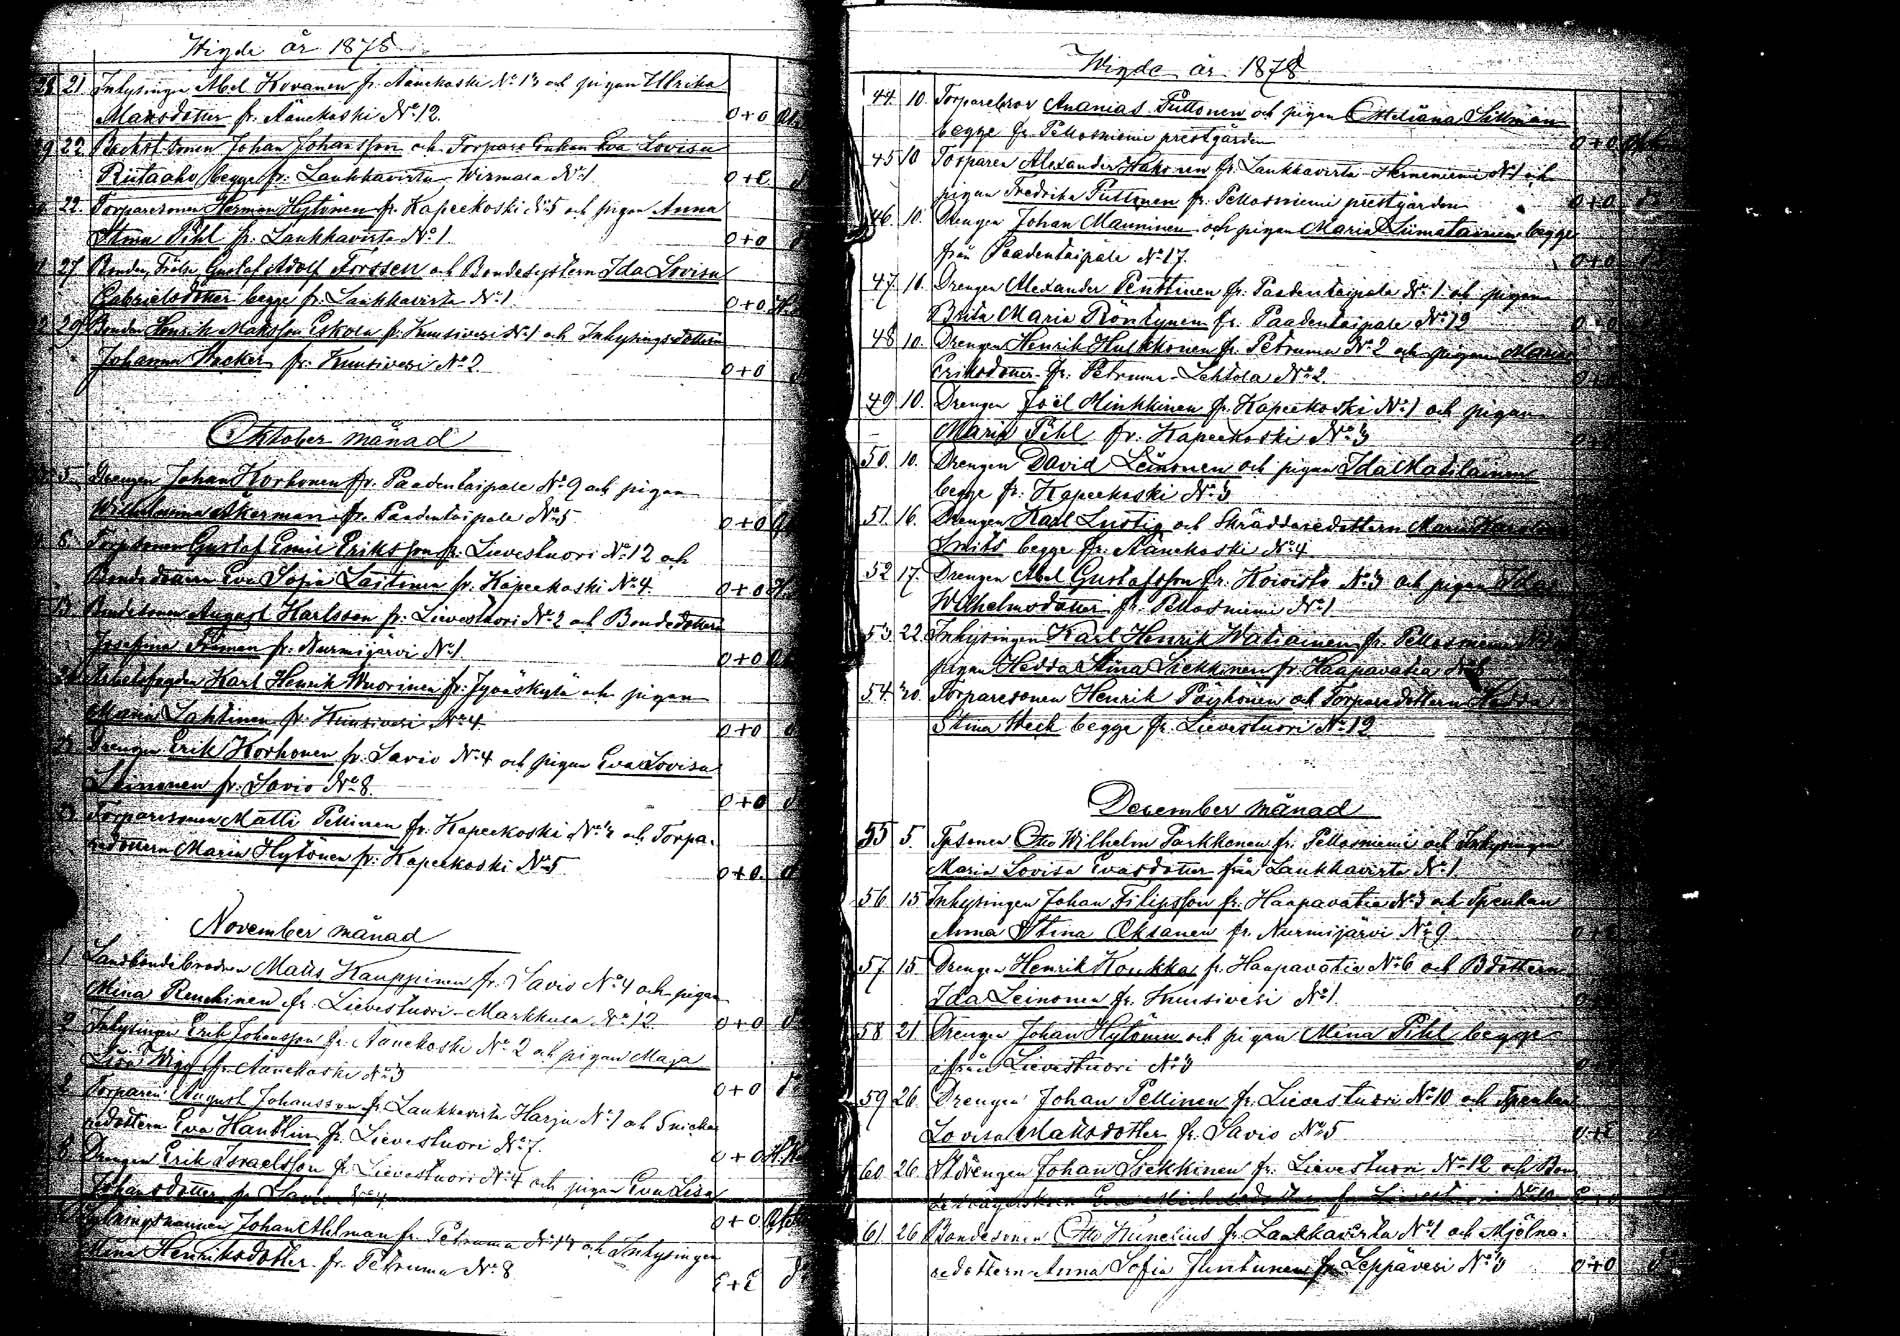 Wigde år 1878
28 21 Inhysingen Abel Kovanen fr. Äänekoski No 13 och pigan Ulrika
Matsdotter fr. Äänekoski No 12. 0+0
29 22 Johan Johansson och Torpare Enkan Eva Lovisa
Riitaaho begge fr. Laukkavirta Wirmala No 1 0+E
22. Torparesonen Herman Hytönen fr. Kapeekoski No 5 och pigan Anna
Stina Pihl fr. Laukkavirta No 1 0+0
27 Bonden Gustaf Adolf Forssen och Bondesystern Ida Lovisa
Gabrielsdotter begge fr. Laukkavirta No 1 0+0
29 Bonden Henrik Matsson Eskola fr. Kuusivesi No 1 och Inhysingsdottern
Johanna Hacker fr. Kuusivesi No 2 0+0
Oktober månad
5 Drengen Johan Korhonen fr. Paadentaipale No 9 och pigan
Wilhelmina Åkerman fr. Paadentaipale No 5 0+0
6. Torpsonen Gustaf Emil Eriksson fr. Lievestuori No 12 och
Bondedottern Eva Sofia Lastinen fr. Kapeekoski No 4. 0+0
13 Bondesonen August Karlsson fr. Lievestuori No 2 och Bondedottern
Josefina Friman fr. Nurmijärvi No 1 0+0
Arbetsfogden Karl Henrik Wuorinen fr. Jyväskylä och pigan
Maria Lahtinen fr. Kuusivesi No 4 0+0
Drengen Erik Korhonen fr. Savio No 4 och pigan Eva Lovisa
Leinonen fr. Savio No 8. 0+0
Torparesonen Matti Pellinen fr. Kapeekoski No 4 och Torpa-
redottern Maria Hytönen fr. Kapeekoski No 5 0+0.
November månad
1 Landbondebrodren Matts Kauppinen fr. Savio No 4 och pigan
Mina fr. Lievestuori-Markkula No 12. 0+0
2 Inhysingen Erik Johansson fr. Äänekoski No 2 och pigan Maja
Lisa fr. Äänekoski No 3 0+0
2 Torparen August Johansson fr. Laukkavirta Harju No 1 och Snickare
redottern Eva Hanblin fr. Lievestuori No 7. 0+0
8 Drengen Erik Israelsson fr. Lievestuori No 4 och pigan Eva Lisa
Johansdotter fr. Savio No 4 0+0
Johan Ahlman fr. Petruma No 14 och Inhysingen
Mina Henriksdotter fr. Petruma No 8 E+E
Wigde år 1878
44. 10. Torparebror Ananias Puttonen och pigan Otteliana Sillman
begge fr. Pellosniemi prestgården 0+0
45 10 Torparen Alexander Hakonen fr. Laukkavirta-Herneniemi No 1 och
pigan Fredrika Puttonen fr. Pellosniemi prestgården 0+0
46. 10. Drengen Johan Manninen och pigan Maria Liimatainen begge
från Paadentaipale No 17. 0+0
47. 10. Drengen Alexander Penttinen fr. Paadentaipale No 1 och pigan
Brita Maria Röntynen fr. Paadentaipale No 12 0+0
48 10. Drengen Henrik Hulkkonen fr. Petruma No 2 och pigan Maria
Eriksdotter fr. Petruma-Lehtola No 2.
49 10. Drengen Joel Minkkinen fr. Kapeekoski No 1 och pigan
Maria Pihl fr. Kapeekoski No 3
50. 10. Drengen David Leinonen och pigan Ida Matilainen
begge fr. Kapeekoski No 3
51 16. Drengen Karl Lustig och Skräddaredottern Maria Karolina
Smits begge fr. Äänekoski No 4
52 17. Drengen Abel Gustafsson fr. Koivisto No 3 och pigan Ida
Wilhelmsdotter fr. Pellosniemi No 1
53. 22. Inhysingen Karl Henrik Watiainen fr. Pellosniemi
pigan Hedda Stina Siekkinen fr. Haapavatia
54. 20. Torparesonen Henrik Pöyhönen och Torparedottern Hedda
Stina Weck begge fr. Lievestuori No 12
December månad
55 5. Tpsonen Otto Wilhelm Parkkonen fr. Pellosniemi och Inhysingen
Maria Lovisa Evasdotter från Laukkavirta No 1.
56 15 Inhysingen Johan Filipsson fr. Haapavatia No 3 och Tpenkan
Anna Stina Oksanen fr. Nurmijärvi No 9
57 15 Drengen Henrik Koukka fr. Haapavatia No 6 och Bdottern
Ida Leinonen fr. Kuusivesi No 1
58 21 Drengen Johan Hytönen och pigan Mina Pihl begge
ifrån Lievestuori No 3
59 26. Drengen Johan Pellinen fr. Lievestuori No 10 och Tpenkan
Lovisa Matsdotter fr. Savio No 5 0+E
60 26. Johan Siekkinen fr. Lievestuori No 12 och Bon-
fr. Lievestuori No 10
61 26 Bondesonen Otto Kunelius fr. Laukkavirta No 1 och Mjölna-
redottern Anna Sofia Juntunen fr. Leppävesi No 3 0+0